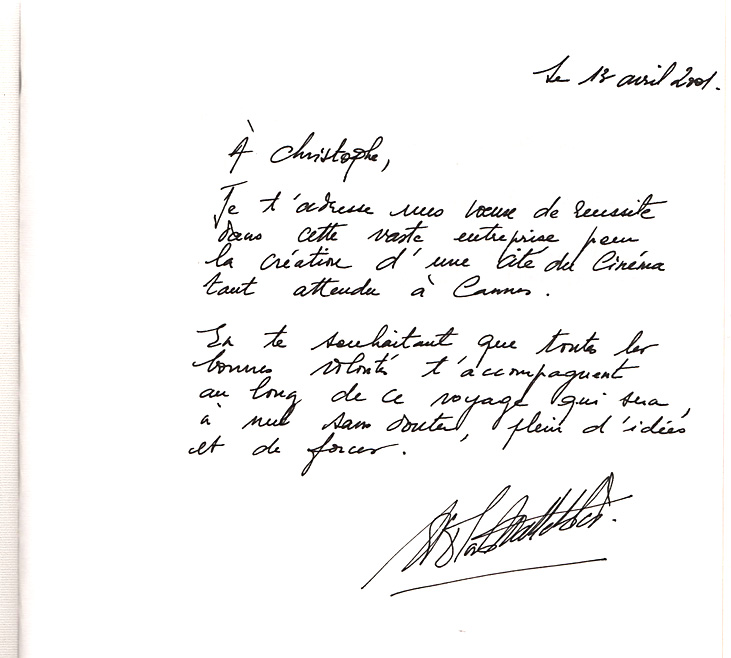 Le 13 avril 2001.
À Christophe,
Je t'adresse mes vœux de réussite
dans cette vaste entreprise pour
la création d'une Cité du Cinéma
tant attendu à Cannes.
En te souhaitant que toutes les
bonnes volontés t'accompagnent
au long de ce voyage qui sera,
à nul sans douter, plein d'idées
et de forces.